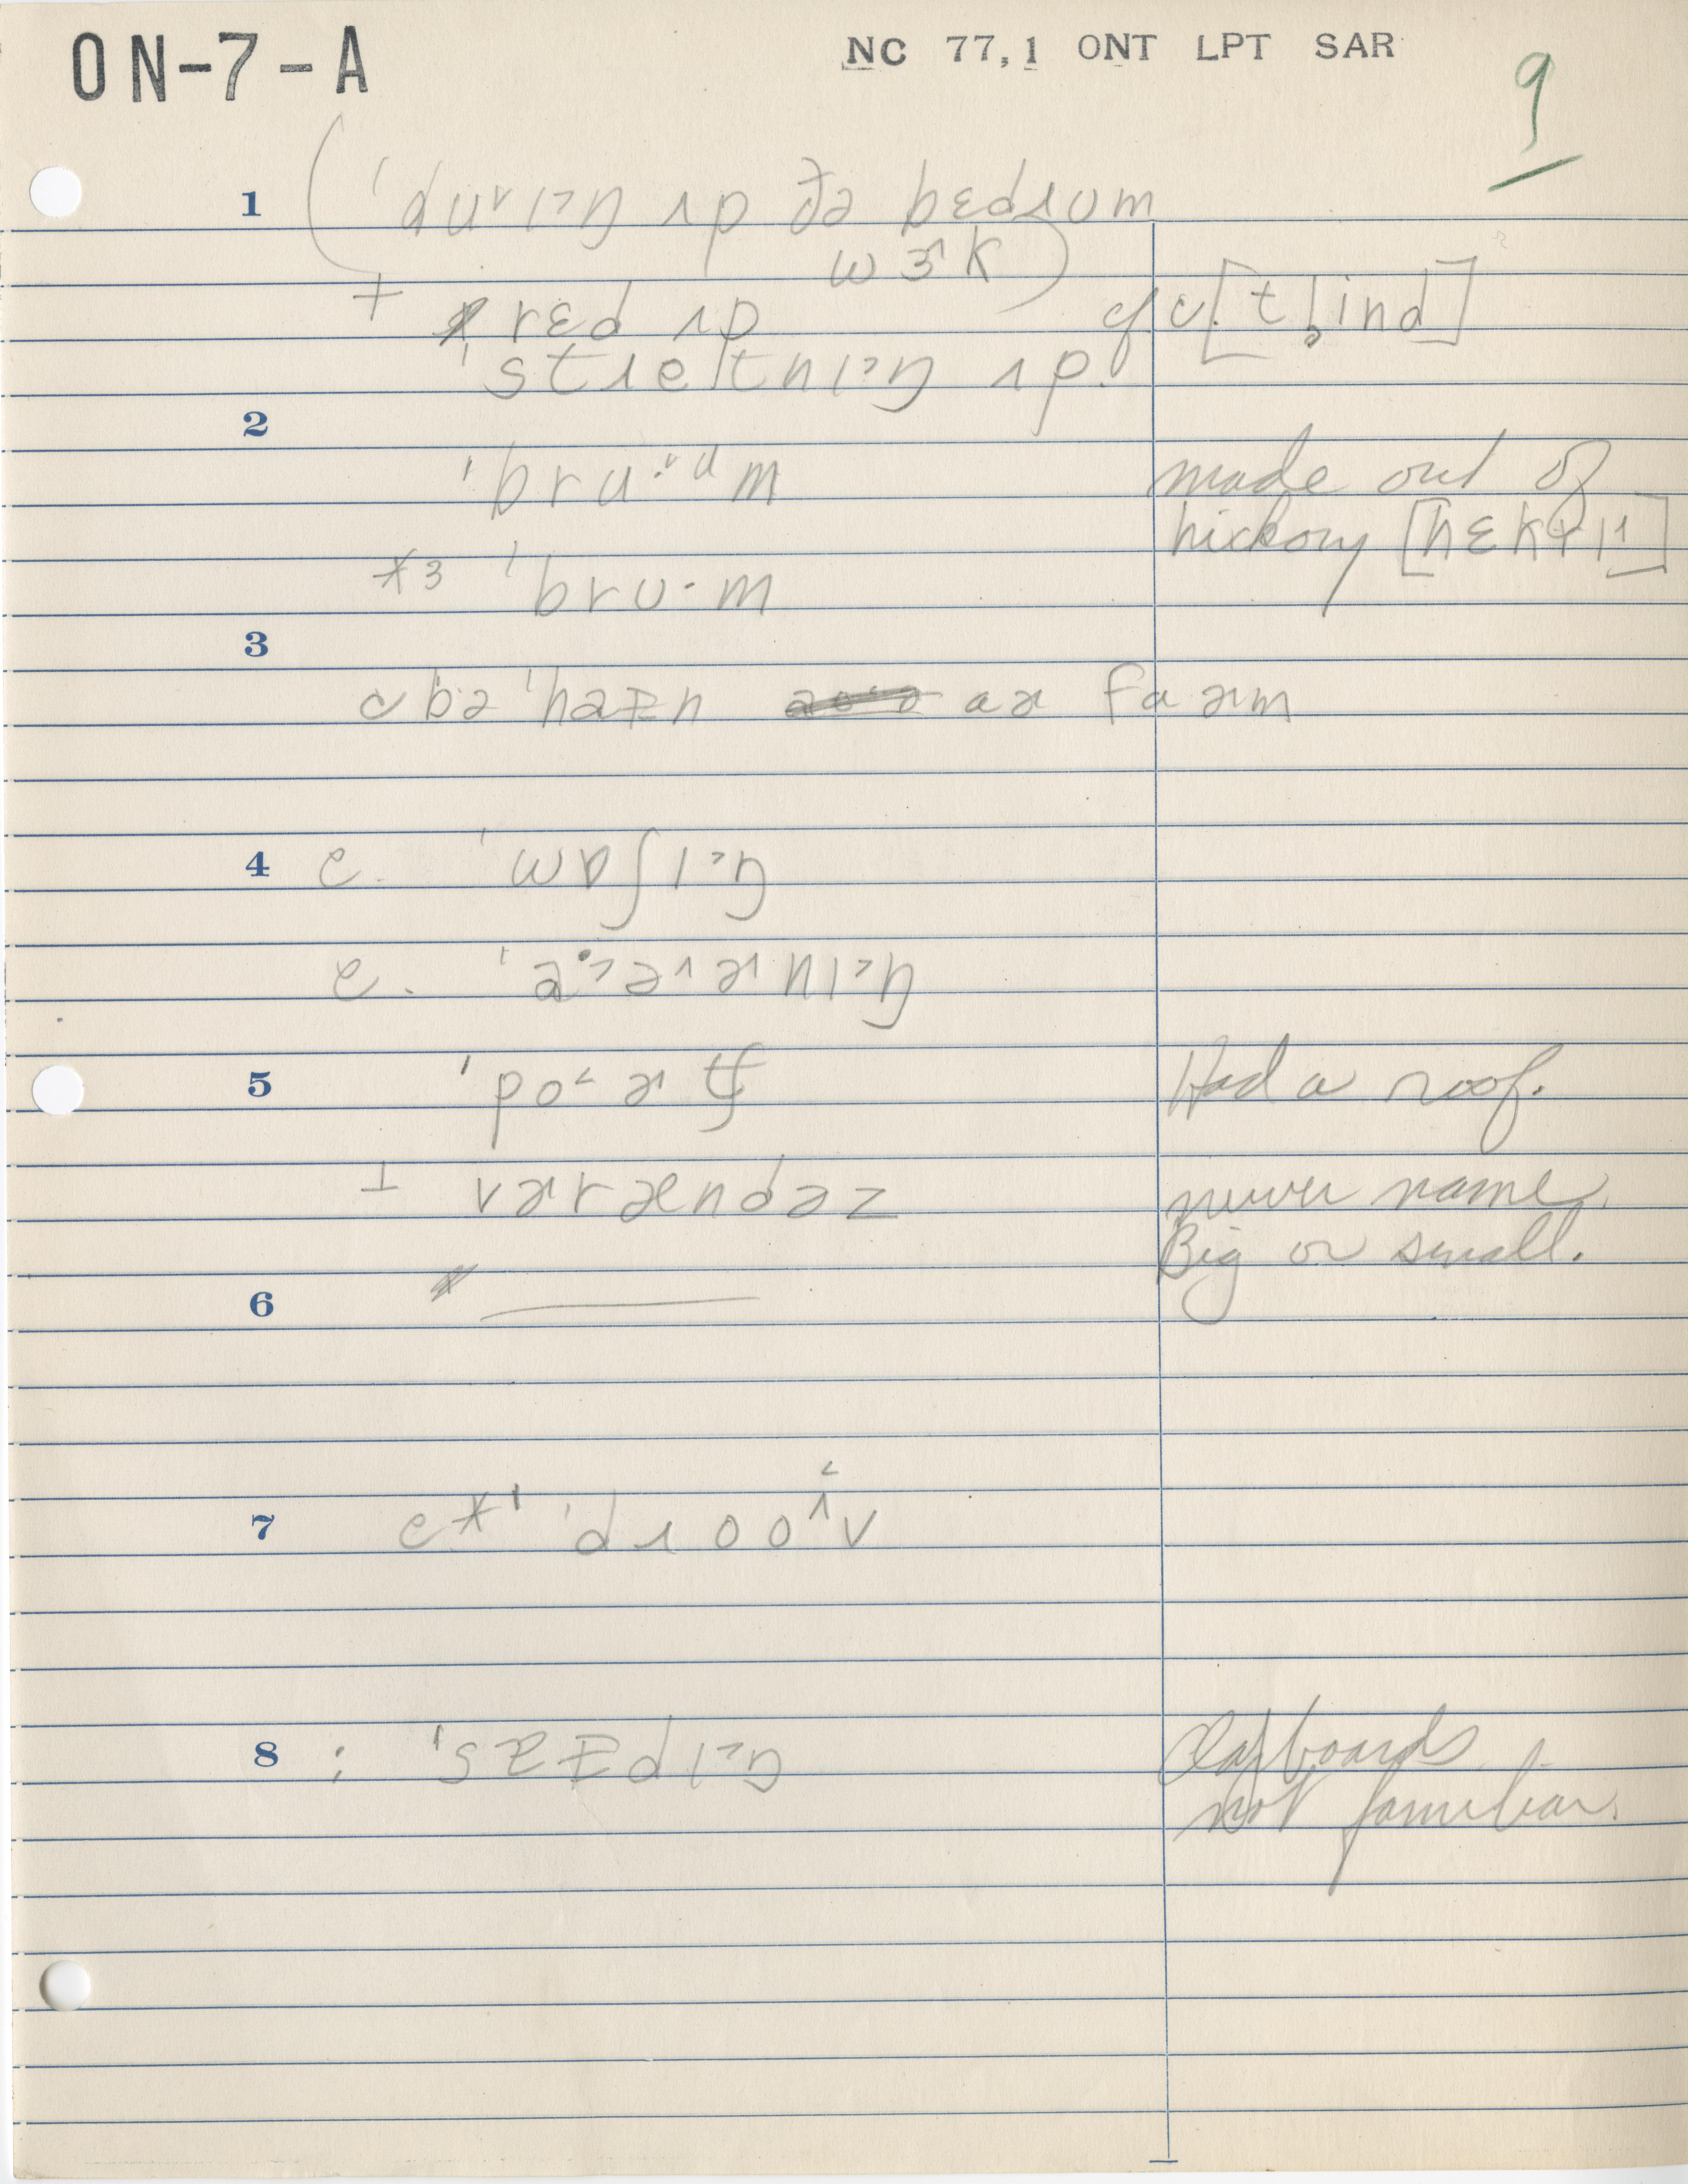 ON-7-A NC 77,1 ONT LPT SAR 9
1 ('duɪ˃ŋ ʌp ðə bɛdrum
wɝk)
+ rɛd ʌp cf. c. [t ̥ind]
'streɪtnɪ˃ŋ ʌp.
2
'bru·ᵘm made out of
hickory
*3 'bru·m
3
c bə'haɪn ar farm
4 c. 'wɒʃɪ˃ŋ
c. 'aɚnɪ˃ŋ
5 'po˂ɚtʃ Had a roof.
⊥ vərændəz never name.
Big or small.
6 ———
7 c*' 'droov
8 : 'saɪdɪ˃ŋ Clapboards
not familiar.